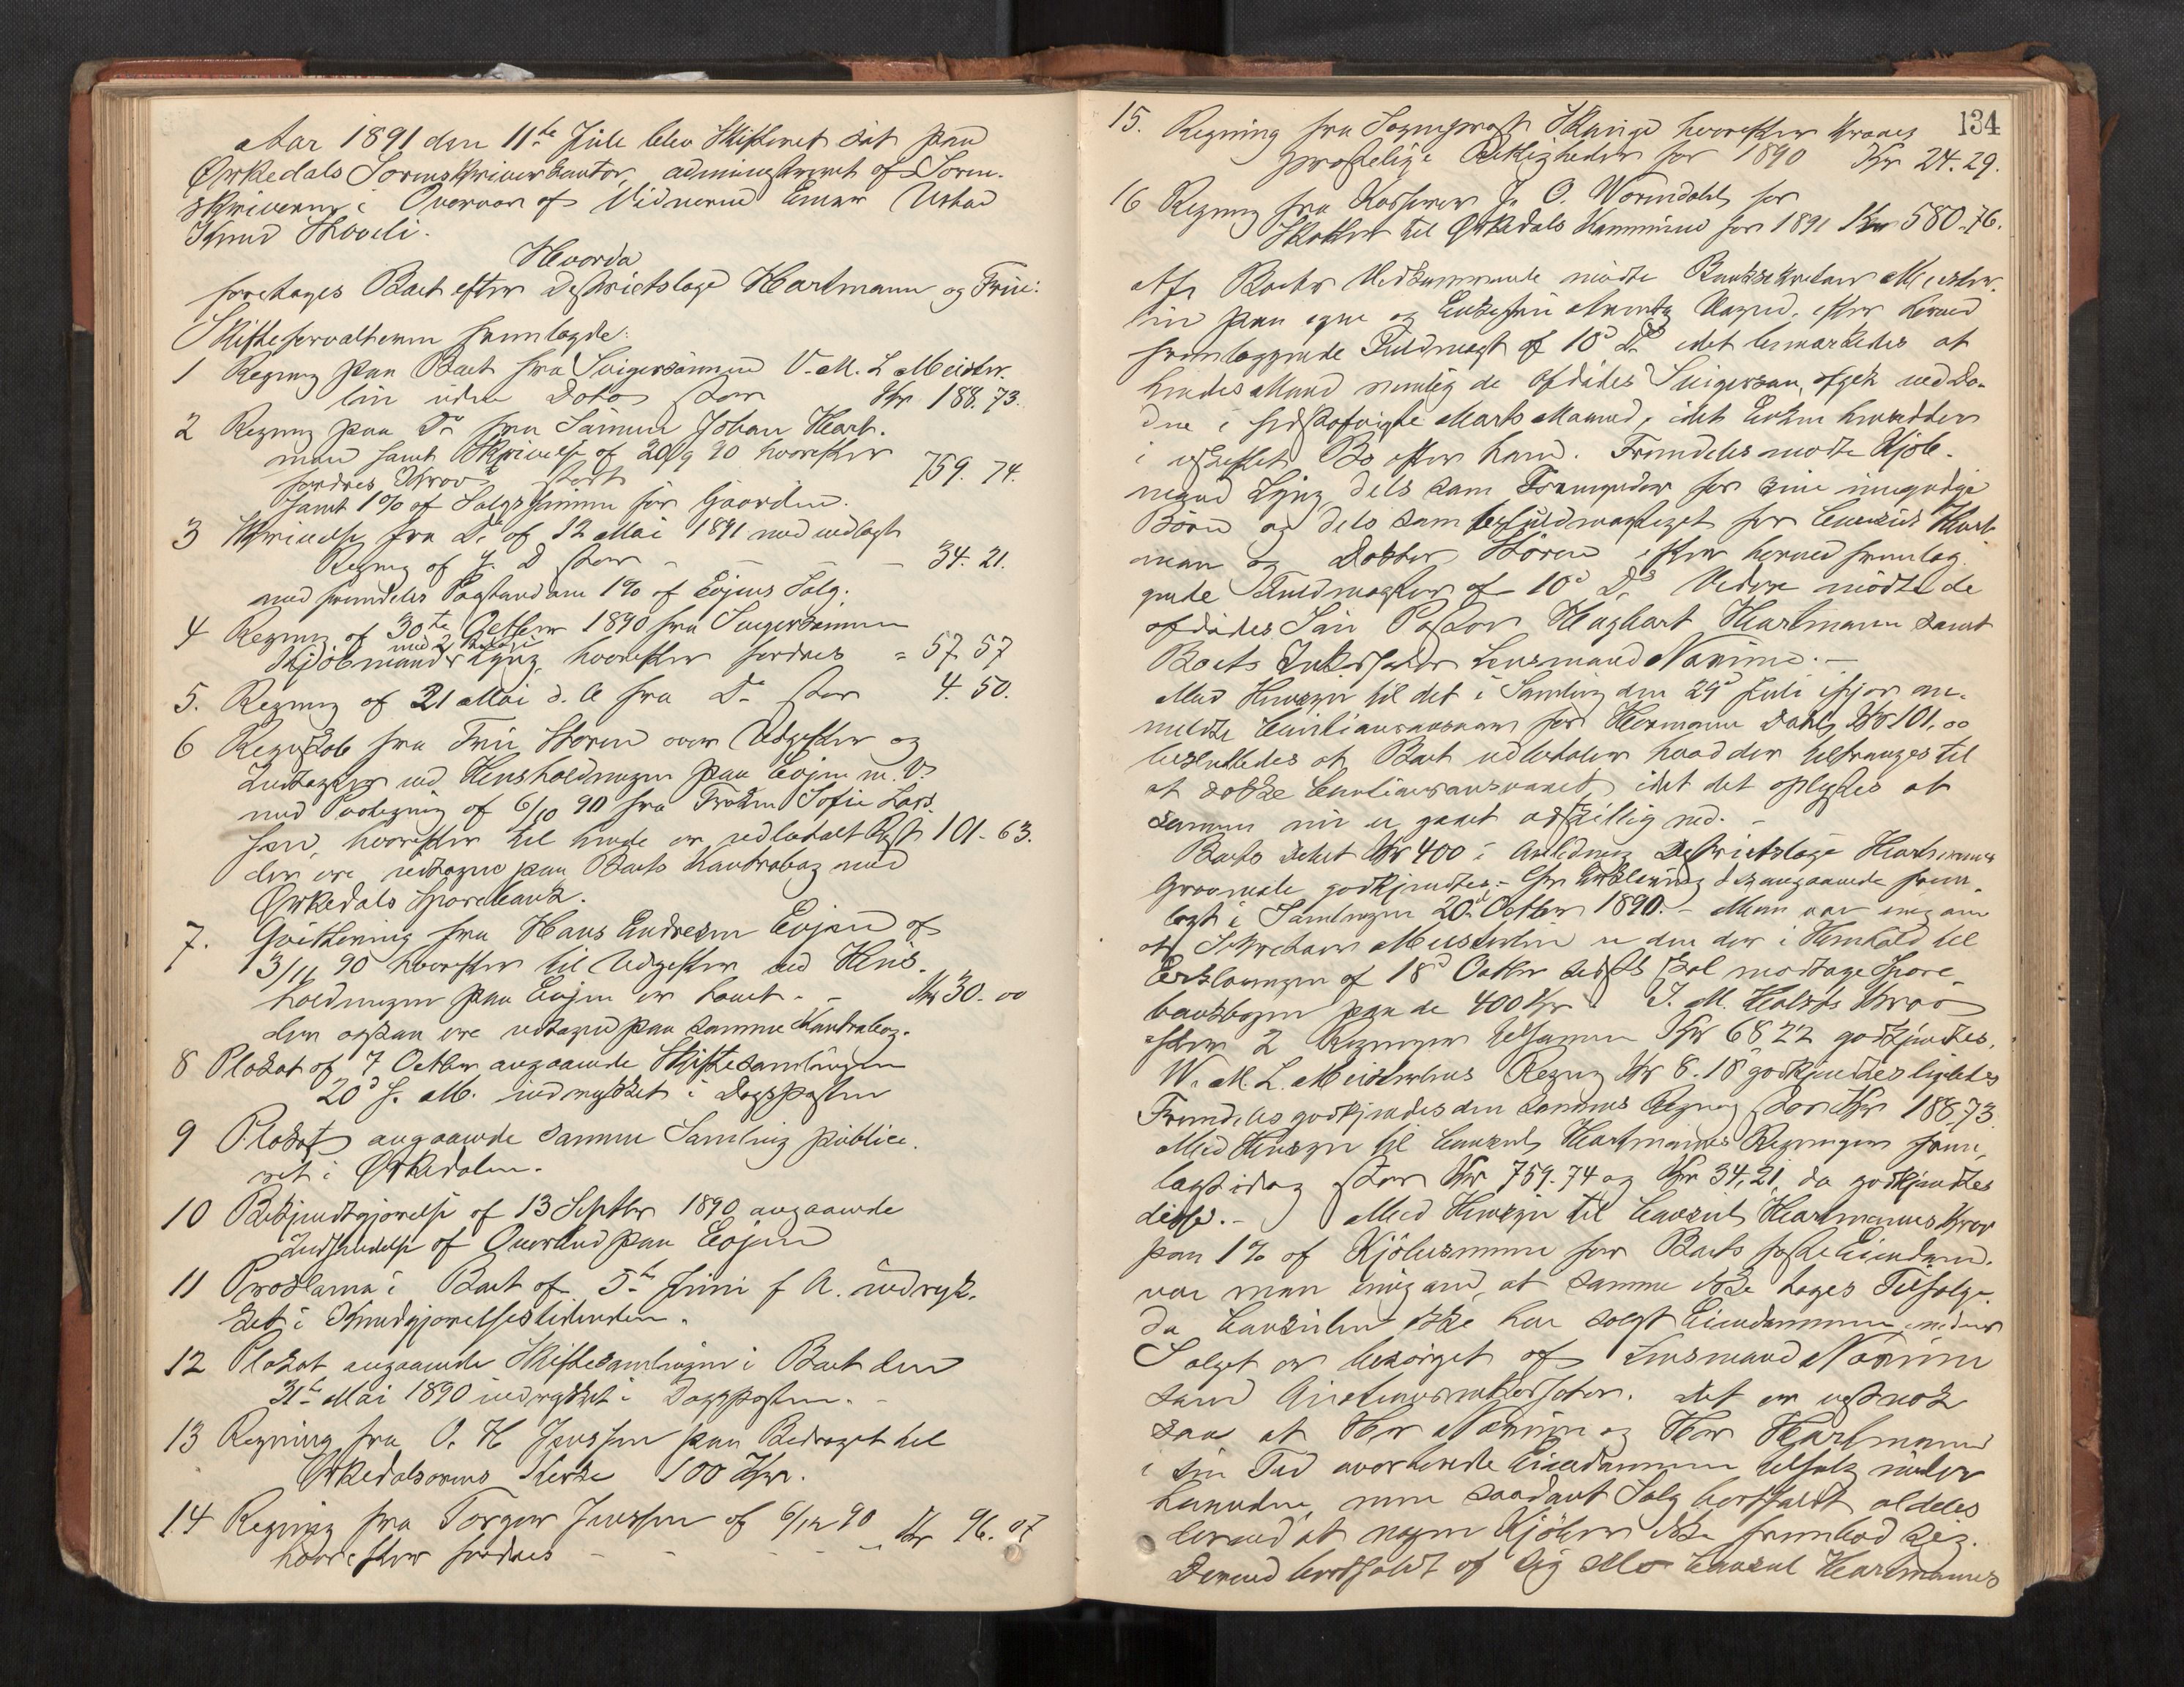 Aar 1891 den 11te Juli blev Skifteret sat paa
Ørkedals Sorenskriverkontor, administreret af Soren-
skriveren i Overvær af Vidnerne Einar Ustad
Knud Hoveli.
Hvorda
foretages Boet efter Distriktslæge Hartmann og Frue:
Skifteforvalteren fremlagde:
1 Regning paa Boet fra Svigersønnen V. M. L Meister-
lin uden Dato stor Kr 188.73.
2 Regning paa Do fra Sønnen Johan Hart-
mann samt Skrivelse af 20/9 90 hvorefter
fordres Krav stort 759.74.
samt 1% af Salgssummen for Gaarden.
3 Skrivelse fra Do af 12 Mai 1891 med vedlagt
Regning af s. D stor - - - 34.21.
med fremdeles Paastand om 1% af Evjens Salg.
4 Regning af 30te Octber 1890 fra Svigersønnen
med 2 Bilage
Kjøbmand Lyng hvorefter fordres = 57 57
5. Regning af 21 Mai d. A fra Do stor 4.50.
6 Regnskab fra Fru Støren over Udgifter og
Indtægter ved Husholdningen paa Evjen m. V.
med Paategning af 6/10 90 fra Frøken Sofie Lars-
sen, hvorefter til hende er udbetalt Rest 101.63.
der ere udtagne paa Boets Kontrabog med
Ørkedals Sparebank.
7. Qvittering fra Hans Endresen Evjen af
13/11 90 hvorefter til Udgifter ved Hus-
holdningen paa Evjen er laant - - Kr 30.00
der ogsaa ere udtagne paa samme Kontrabog.
8 Plakat af 7 Octber angaaende Skiftesamlingen
20d s. M. indrykket i Dagsposten
9 Plakat angaaende samme Samling publice-
ret i Ørkedalen.
10 Bekjendtgjørelse af 13 Septbr 1890 angaaende
Indsendelse af Overbud paa Evjen
11 Proklama i Boet af 5te Juni f A. indryk-
ket i Kundgjørelsestidenden.
12 Plakat angaaende Skiftesamlingen i Boet den
31te Mai 1890 indrykket i Dagsposten. -
13 Regning fra O. H Jenssen paa Bidraget til
Ørkedalsørens Kirke 100 Kr.
14 Regning fra Torger Jenssen af 6/12 90
hvorefter fordres - - - - Kr 96.07
134
15. Regning fra Sogneprest Krange hvorefter kræves
prestelige Rettigheder for 1890 Kr 24.29.
16 Regning fra Kasserer J. O. Wormdahl for
Skatter til Ørkedals Kommune for 1891 Kr 580.76.
Af Boets Vedkommende mødte Banksekretær Meister-
lin paa egne og Enkefru Vegne, efter herved
fremlæggende Fuldmagt af 10d Ds idet bemærkedes at
hendes Mand nemlig de Afdødes Svigersøn, afgik ved Dø-
den i sidstafvigte Marts Maaned, idet Enken hensidder
i uskiftet Bo efter ham. Fremdeles mødte Kjøb-
mand Lyng dels som Formynder for sine umyndige
Børn og dels som befuldmægtiget for Consul Hart-
man og Doktor Støren efter herved fremlæg-
gende Fuldmagter af 10d Ds Videre mødte de
afdødes Søn Pastor Hagbart Hartmann samt
Boets Inkassator Lensmand Narum. -
Med Hensyn til det i Samling den 29d Juli ifjor an-
meldte Cautionsansvar for Hermann Dahl, Kr 101.00
besluttedes at Boet udbetaler hvad der tiltrænges til
at dække Cautionsansvaret, idet det oplystes at
samme nu er gaaet adskillig ned. -
Boets Debet Kr 400 i Anledning Distriktslæge Hartmanns
Gravmæle godkjendtes. - Erklæring desangaaende frem-
lagt i Samlingen 20d Octber 1890. - Man var enig om
at Sekretær Meisterlin er den der i Henhold til
Erklæringen af 18d Octbr sidstl skal modtage Spare-
bankbogen paa de 400 Kr. J. M. Holsts Krav
efter 2 Regninger tilsammen Kr 68 22 godkjendtes.
W. M. L. Meisterlins Regning Kr 8.18 godkjendtes ligeledes
Fremdeles godkjendtes den sammes Regning stor Kr 188.73.
Med Hensyn til Consul Hartmanns Regninger frem-
lagt idag stor Kr 759.74 og Kr 34,21, da godkjendtes
disse. - Med Hensyn til Consul Hartmanns Krav
paa 1% af Kjøbesummen for Boets faste Eiendom.
var man enig om, at samme ikke tages Tilfølge.
da Consulen ikke har solgt Eiendommen, medens
Salget er besørget af Lensmand Narum
som Auctionsinkassator. Det er vistnok
saa at Hr Narum og Hr Hartmann
i sin Tid averterede Eiendommen tilsalg under
haanden, men saadant Salg bortfaldt aldeles
derved at nogen Kjøber ikke frembød sig.
Dermed bortfaldt af sig selv Consul Hartmanns